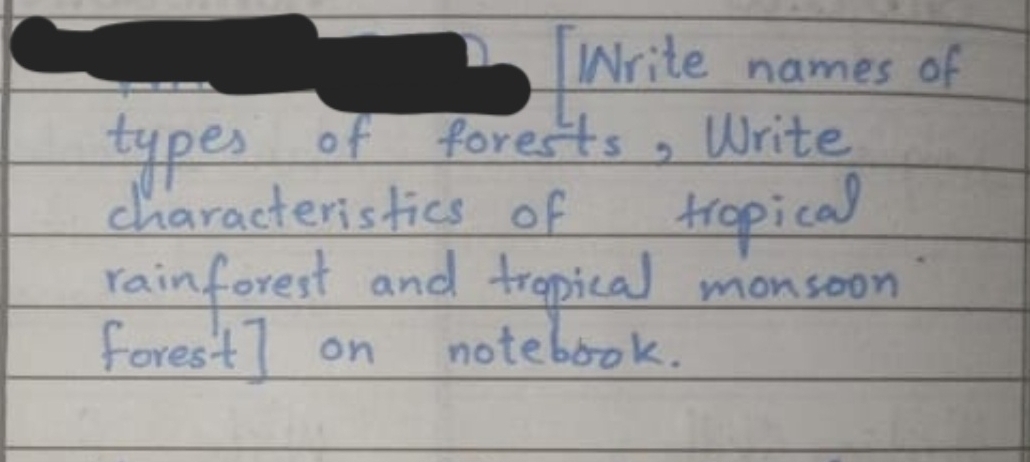 [Write names of
types of forests, Write
characteristics of tropical
rainforest and tropical monsoon
forest] on notebook.